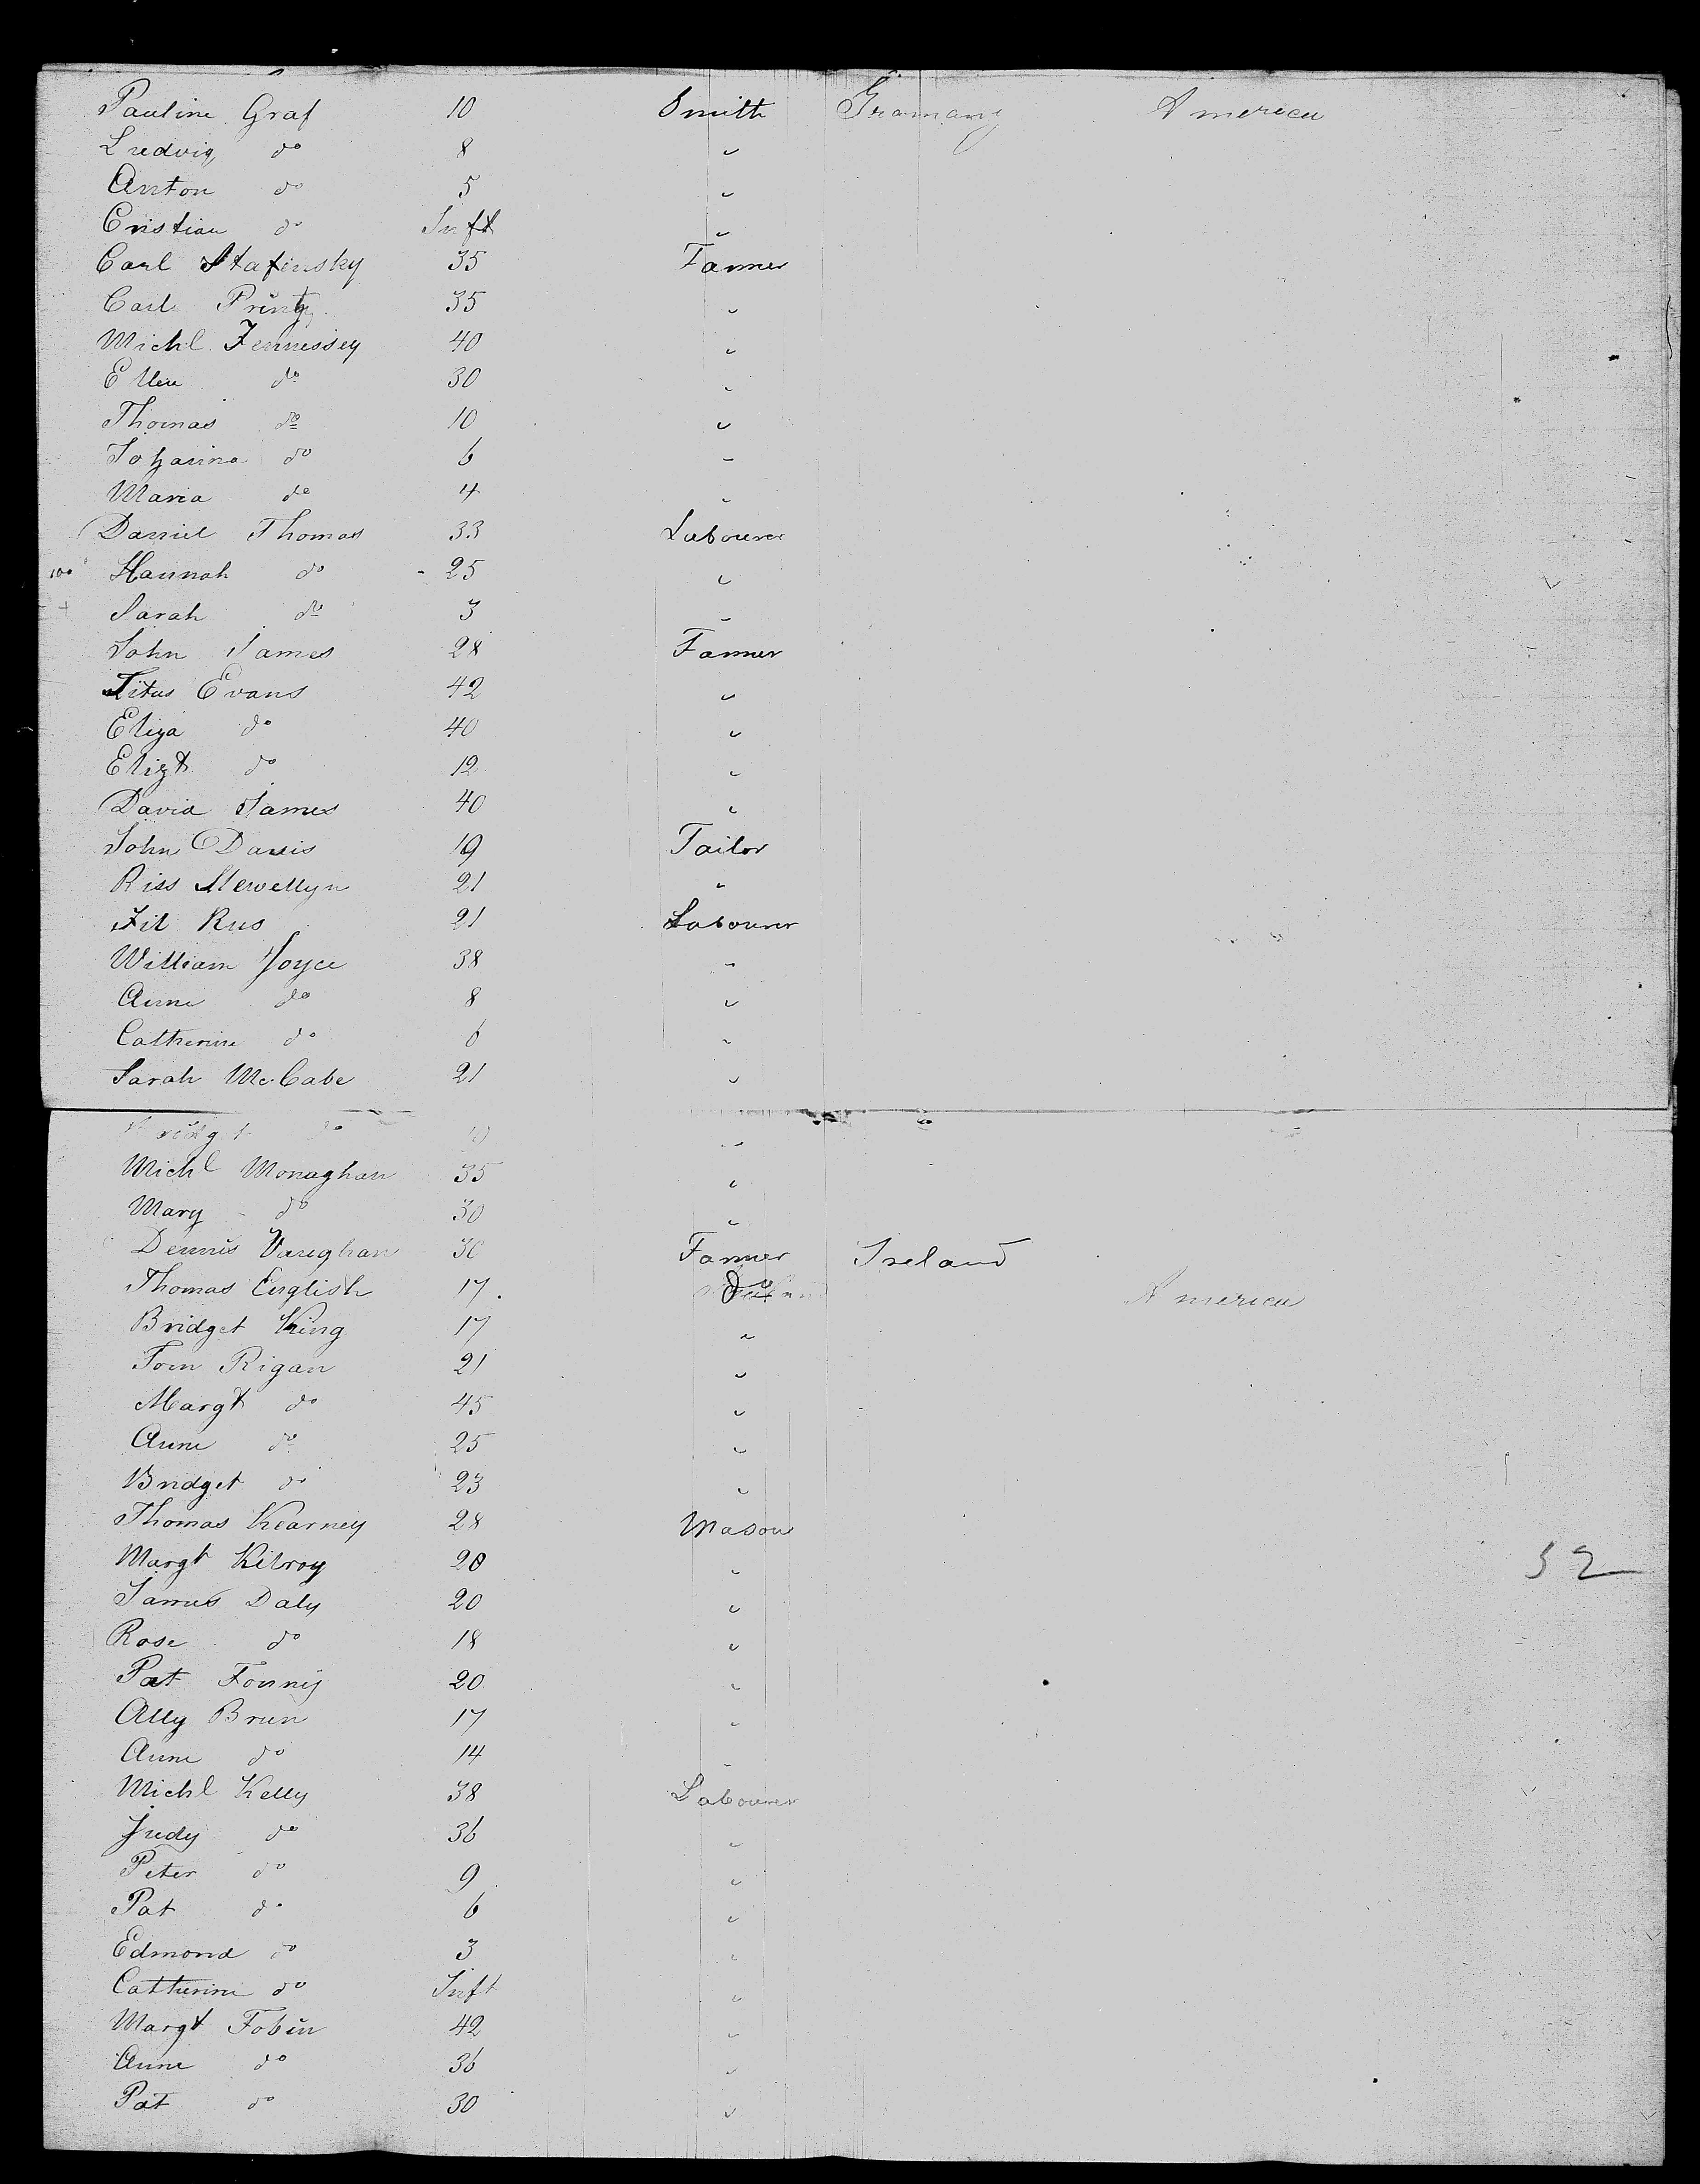 Pauline Graf 10 Smith Gramany America
Ludvig do 8 "
Anton do 5 "
Cristian do Inft "
Carl Stafinsky 35 Farmer
Carl Printz 35 "
Michl Fennessey 40 "
Ellen do 30 "
Thomas do 10 "
Johanna do 6 "
Maria do 4 "
Daniel Thomas 33 Labourer
100 Hannah do 25 "
Sarah do 3 "
John James 28 Farmer
Titus Evans 42 "
Eliza do 40 "
Elizt do 12 "
David James 40 "
John Davis 19 Tailor
Riss Llewellyn 21 "
Rus 21 Labourer
William Joyce 38 "
Anne do 8 "
Catherine do 6 "
Sarah McCabe 21 "
do "
Michl Monaghan 35 "
Mary do 30 "
Dennis Vaughan 30 Farmer Ireland
Thomas English 17 do America
Bridget King 17 "
Tom Rigan 21 "
Margt do 45 "
Anne do 25 "
Bridget do 23 "
Thomas Kearney 28 Mason
Margt Kilroy 20 "
52
James Daly 20 "
Rose do 18 "
Pat 20 "
Ally Brun 17 "
Anne do 14 "
Michl Kelly 38 Labourer
Judy do 36 "
Peter do 9 "
Pat do 6 "
Edmond do 3 "
Catherine do Inft "
Margt Tobin 42 "
Anne do 36 "
Pat do 30 "